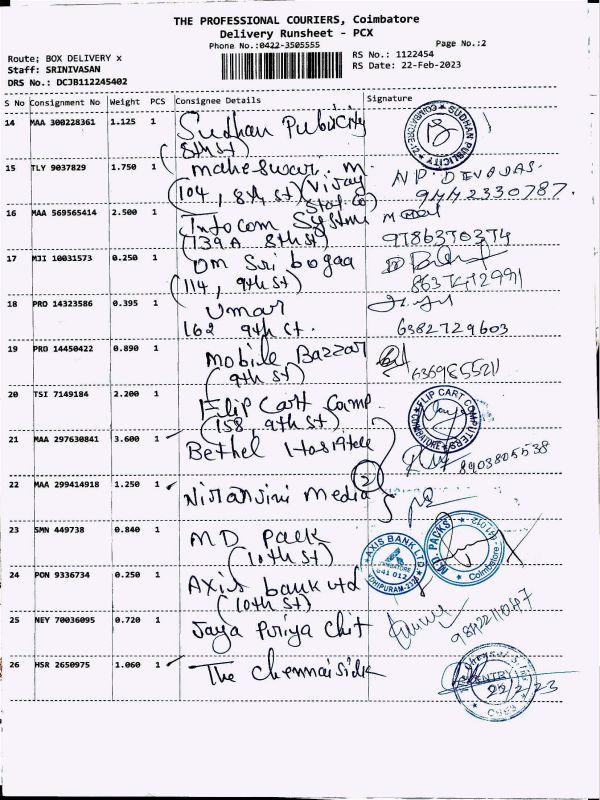 THE PROFESSIONAL COURIERS, Coimbatore
Delivery Runsheet - PCX
Phone No.:0422-3505555
Page No.:2
Route; BOX DELIVERY x
Staff: SRINIVASAN
DRS No.: DCJB112245402
RS No.: 1122454
RS Date: 22-Feb-2023
S No Consignment No Weight PCS Consignee Details Signature
14 MAA 300228361 1.125 1 Sudhan Publicity
(8th st)
SUDHAN PUBLICITY
COIMBATORE-12
15 TLY 9037829 1.750 1 Maheswari. M
(104, 8th st) (Vijay
NP. DEVADAS.
9442330787.
16 MAA 569565414 2.500 1 Infocom Systems
(139A 8th st)
9786370374
17 MJI 10031573 0.250 1 OM Sri bogaa
(114, 9th st)
8637412991
18 PRO 14323586 0.395 1 Umar
162 9th st.
6382729603
19 PRO 14450422 0.890 1 Mobile Bazzar
(9th st)
6369855211
20 TSI 7149184 2.200 1 Flip Cart Comp
(158, 9th st)
FLIP CART COMPUTERS
COIMBATORE
21 MAA 297630841 3.600 1 Bethel Hospitele
8903805538
22 MAA 299414918 1.250 1 Niranjini Media
2
23 SMN 449738 0.840 1 MD Pack
(10th st)
MD PACKS
Coimbatore-641 012
24 PON 9336734 0.250 1 Axis bank Ltd
(10th st)
AXIS BANK LTD
COIMBATORE
641 012
25 NEY 70036095 0.720 1 Jaya Priya Chit
26 HSR 2650975 1.060 1 The Chennai Silk
ENTRY
22/2/23